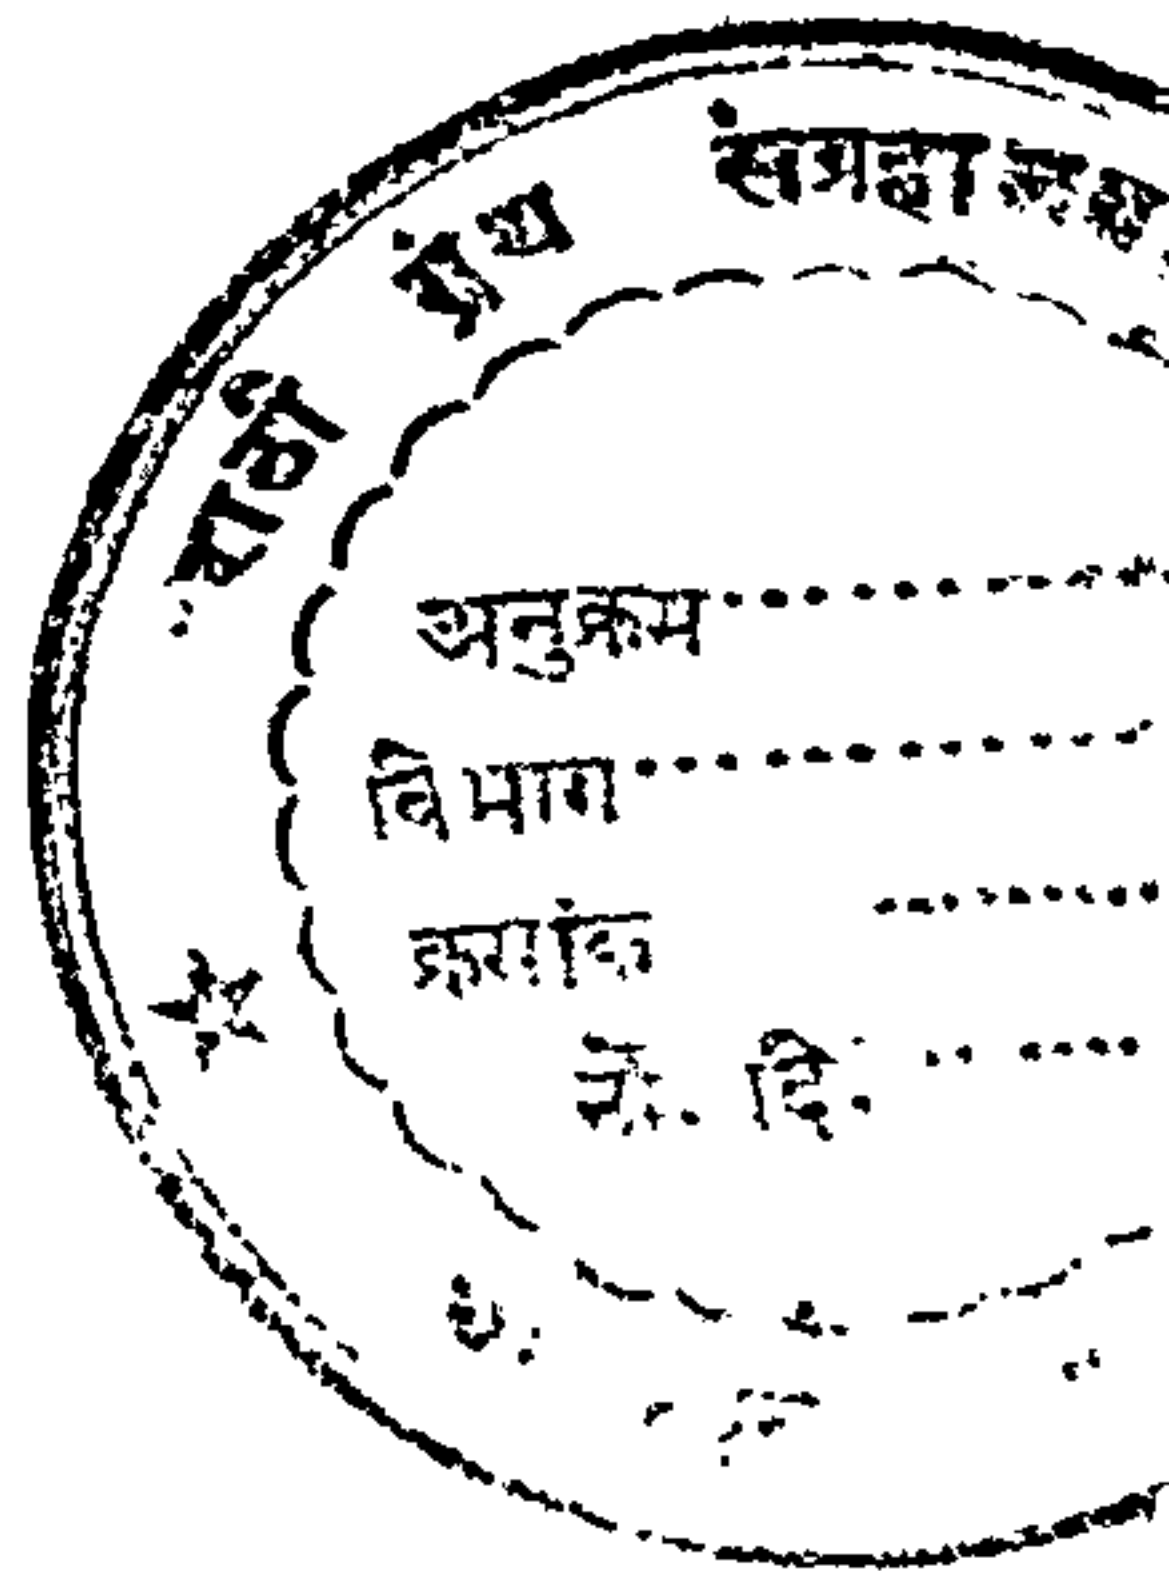 राठी ग्रंथ संग्रहालय
अनुक्रम ..............
विभाग ..............
क्रमांक ........
नों. दि. ........